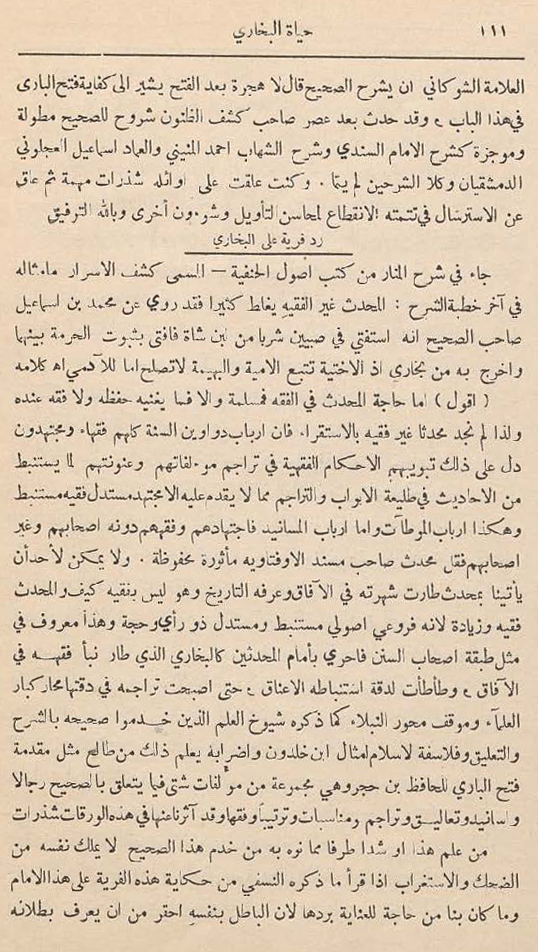 ١١١ حياة البخاري
العلامة الشوكاني ان يشرح الصحيح قال لا هجرة بعد الفتح يشير الى كفاية فتح البارى
في هذا الباب ، وقد حدث بعد عصر صاحب كشف الظنون شروح للصحيح مطولة
وموجزة كشرح الامام السندي وشرح الشهاب احمد المنيني والعماد اسماعيل العجلوني
الدمشقيان وكلا الشرحين لم يتما . وكنت علقت على اوائله شذرات مهمة ثم عاق
عن الاسترسال في تتمته الانقطاع لمحاسن التأويل وشوءون أخرى وبالله التوفيق
رد فرية على البخاري
جاء في شرح المنار من كتب اصول الحنفية – السمى كشف الاسرار مامثاله
في آخر خطبة الشرح : المحدث غير الفقيه يغلط كثيرا فقد روي عن محمد بن اسماعيل
صاحب الصحيح انه استفتي في صبيين شربا من لبن شاة فافتى بثبوت الحرمة بينهما
واخرج به من بخارى اذ الاختية تتبع الامية والبهيمة لا تصلح اما للآدمي اه كلامه
( اقول ) اما حاجة المحدث في الفقه فمسلمة والا فما يغنيه حفظه ولا فقه عنده
ولذا لم نجد محدثا غير فقيه بالاستقراء فان ارباب دواوين السنة كلهم فقهاء ومجتهدون
دل على ذلك تبويبهم الاحكام الفقهية في تراجم موءلفاتهم وعنونتهم لما يستنبط
من الاحاديث في طليعة الابواب والتراجم مما لا يقدم عليه الا مجتهد مستدل فقيه مستنبط
وهكذا ارباب الموطآت واما ارباب المسانيد فاجتهادهم وفقههم دونه اصحابهم وغير
اصحابهم فقل محدث صاحب مسند الا وفتاويه مأثورة محفوظة . ولا يمكن لاحد أن
يأتينا بمحدث طارت شهرته في الآفاق وعرفه التاريخ وهو ليس بفقيه كيف والمحدث
فقيه وزيادة لانه فروعي اصولي مستنبط ومستدل ذو رأي وحجة وهذا معروف في
مثل طبقة اصحاب السنن فاحرى بأمام المحدثين كالبخاري الذي طار نبأ فقهه في
الآفاق ، وطأطأت لدقة استنباطه الاعناق ، حتى اصبحت تراجمه في دقتها محار كبار
العلماء وموقف محور النبلاء كما ذكره شيوخ العلم الذين خدموا صحيحه بالشرح
والتعليق وفلاسفة لاسلام امثال ابن خلدون واضرابه يعلم ذلك من طالع مثل مقدمة
فتح الباري للحافظ بن حجر وهي مجموعة من موءلفات شتى فيما يتعلق بالصحيح رجالا
واسانيد وتعاليق وتراجم ومناسبات وترتيبا وفقها وقد آثرنا عنها في هذه الورقات شذرات
من علم هذا او شدا طرفا مما نوه به من خدم هذا الصحيح لا يملك نفسه من
الضحك والاستغراب اذا قرأ ما ذكره النسفي من حكاية هذه الفرية على هذا الامام
وما كان بنا من حاجة للعناية بردها لان الباطل بنفسه احقر من ان يعرف بطلانه